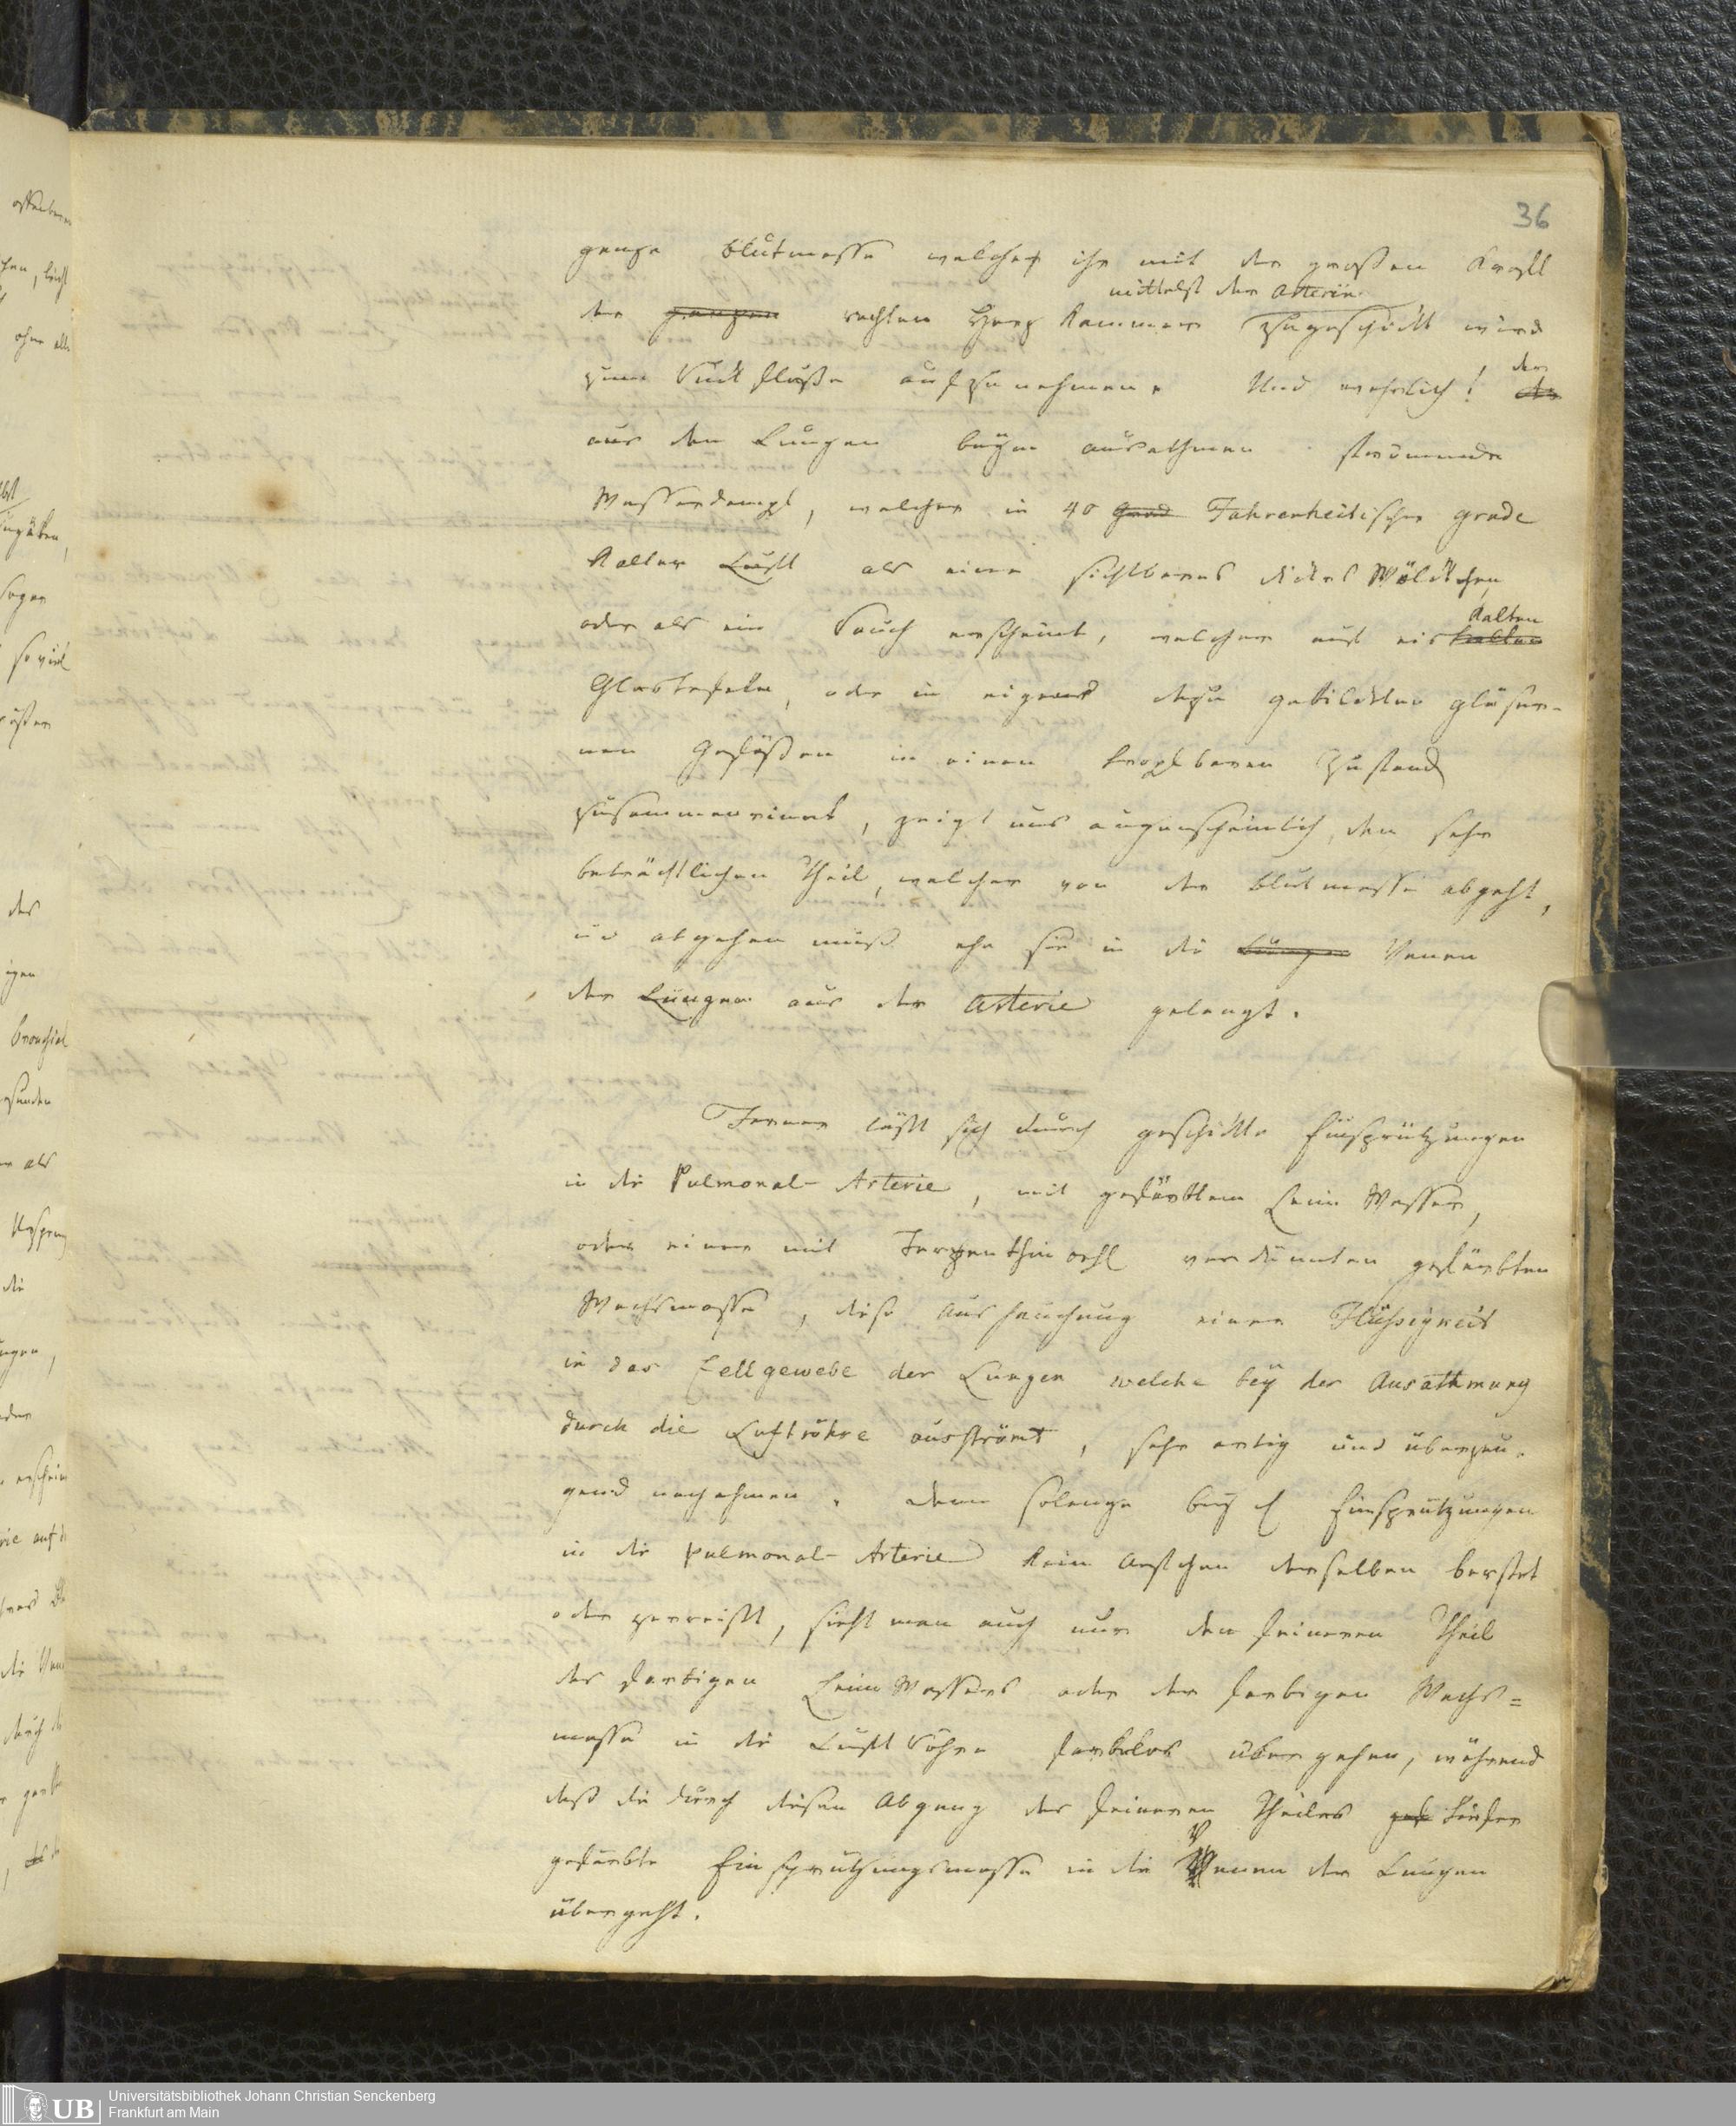 36
ganze Blutmasse welche ihr mit der großen Krafft
der ganzen rechten Herz Kammer mittelst der Arterie zugeschickt wird
zum Rückfluße aufzunehmen. Und wahrlich! der
aus den Lungen beym ausathmen strömende
Wasserdampf, welcher in 40 Grad Fahrenheitischer grade
Kalter Lufft als eine sichtbares dickes Wölkchen,
oder als ein Rauch erscheint, welcher auf eiskalten kalten
Glastafeln, oder in eigends dazu gebildeten gläser-
nen Gefäßen in einen tropfbaren Zustand
zusammenrinnt, zeigt uns augenscheinlich, den sehr
beträchtlichen Theil, welcher von der Blutmasse abgeht,
und abgehen muß ehe sie in die Lungen Venen
der Lungen aus der Arterie gelangt.
Ferner läßt sich durch geschickte Einsprützungen
in die Pulmonal-Arterie, mit gefärbtem Leim Wasser,
oder einer mit Terpenthinoehl verdünnten gefärbten
Wachsmasse, diese Aushauchung einer Flüssigkeit
in das Zellgewebe der Lungen welche bey der Ausathmung
durch die Luftröhre ausströmt, sehr artig und überzeu-
gend nachahmen. denn solange bey Einsprützungen
in die Pulmonal-Arterie kein Aestchen derselben berstet
oder zerreißt, sieht man auch nur den feineren Theil
des farbigen Leim Wassers oder der farbigen Wachs=
masse in die Lufft Röhre farbelos übergehen, während
daß die durch diesen Abgang des feineren Theiles gef tiefer
gefärbte Einsprützungsmasse in die Venen der Lungen
übergeht.
UB
Universitätsbibliothek Johann Christian Senckenberg
Frankfurt am Main